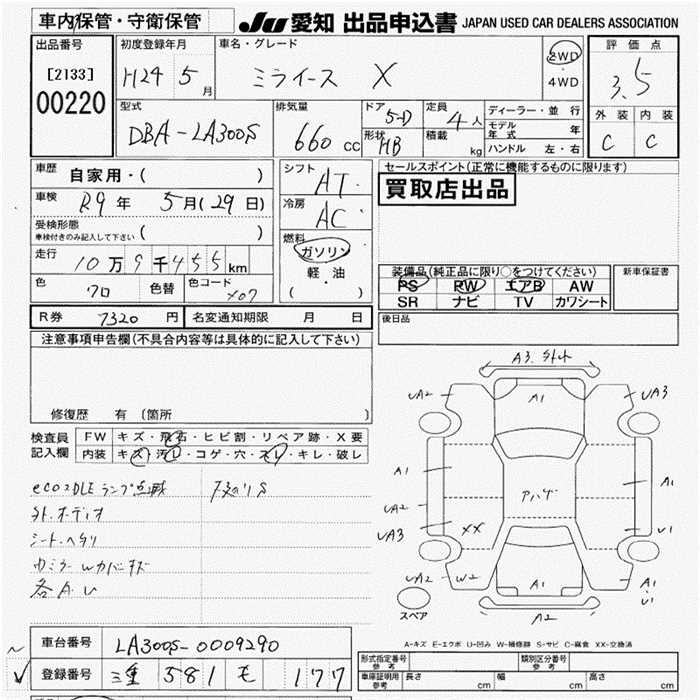 車内保管・守衛保管 JU 愛知 出品申込書 JAPAN USED CAR DEALERS ASSOCIATION
出品番号 初度登録年月 車名・グレード 2WD 評価点
[2133] H24 5月 ミライース X 4WD 3.5
00220
型式 排気量 ドア 5-D 定員 4人 ディーラー・並行 外装 内装
DBA-LA300S 660cc 形状 HB 積載 kg モデル年式 年 C C
ハンドル 左・右
車歴 自家用・( ) シフト AT セールスポイント(正常に機能するものに限ります)
車検 R9年 5月(29日) 冷房 AC 買取店出品
受検形態 ( )
車検付きのみ記入して下さい
燃料 ガソリン
走行 10万9千455km 軽・油 装備品(純正品に限り○をつけてください) 新車保証書
色 クロ 色替 色コード X07 ( ) PS PW エアB AW
SR ナビ TV カワシート
R券 7320円 名変通知期限 月 日 後日品
注意事項申告欄(不具合内容等は具体的に記入して下さい)
修復歴 有 〔箇所 〕
検査員 FW キズ・飛石・ヒビ割・リペア跡・X要
記入欄 内装 キズ・汚レ・コゲ・穴・スレ・キレ・破レ
eco2DLE ランプ点滅
外.オーディオ
シートヘタリ
各A.U
A3.
A1
UA2 UA3
A1 A1
アハゲ
UA2
UA3 XX U1
UA2 W2 A1 A1
U1
スペア A2
A-キズ E-エクボ U-凹み W-補修跡 S-サビ C-腐食 XX-交換済
車台番号 LA300S-0009290
登録番号 三重 581 モ 177
形式指定番号 参考 類別区分番号 参考
車庫証明用 参考 長さ cm 幅 cm 高さ cm